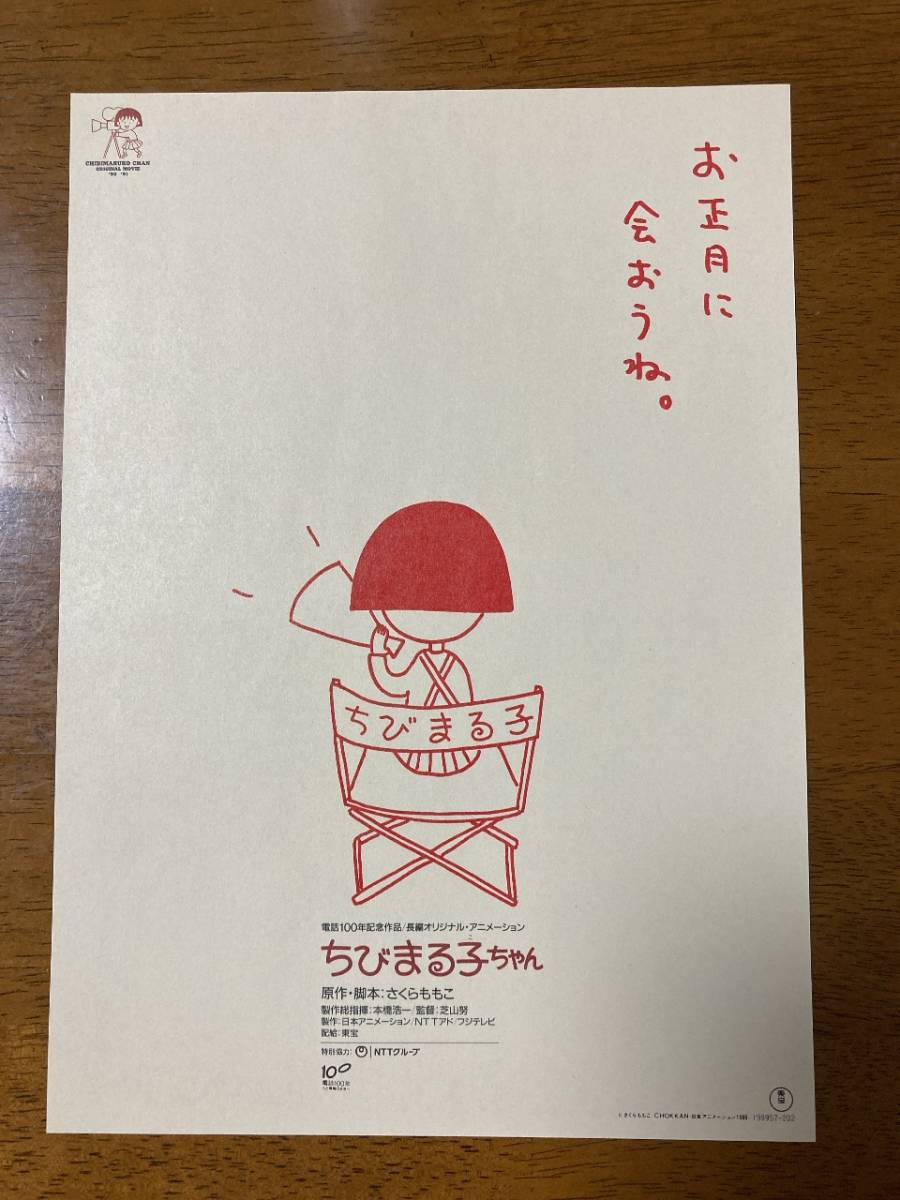 CHIBIMARUKO CHAN
ORIGINAL MOVIE
'90 '91
お正月に
会おうね。
ちびまる子
電話100年記念作品/長編オリジナル・アニメーション
ちびまる子ちゃん
原作・脚本:さくらももこ
製作総指揮:本橋浩一/監督:芝山努
製作:日本アニメーション/NTTアド/フジテレビ
配給:東宝
特別協力: NTTグループ
100
電話100年
東宝
©さくらももこ CHOKKAN・日本アニメーション1990